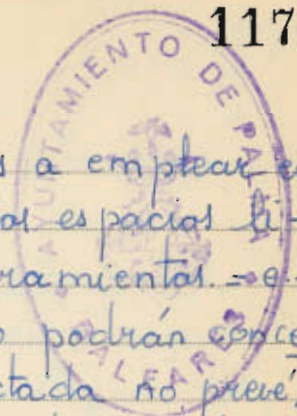 117
AYUNTAMIENTO DE PALMA
BALEARES
s a emplear e
os espacios li-
ramientas. = e
o podrán conce
ctada no prevé,